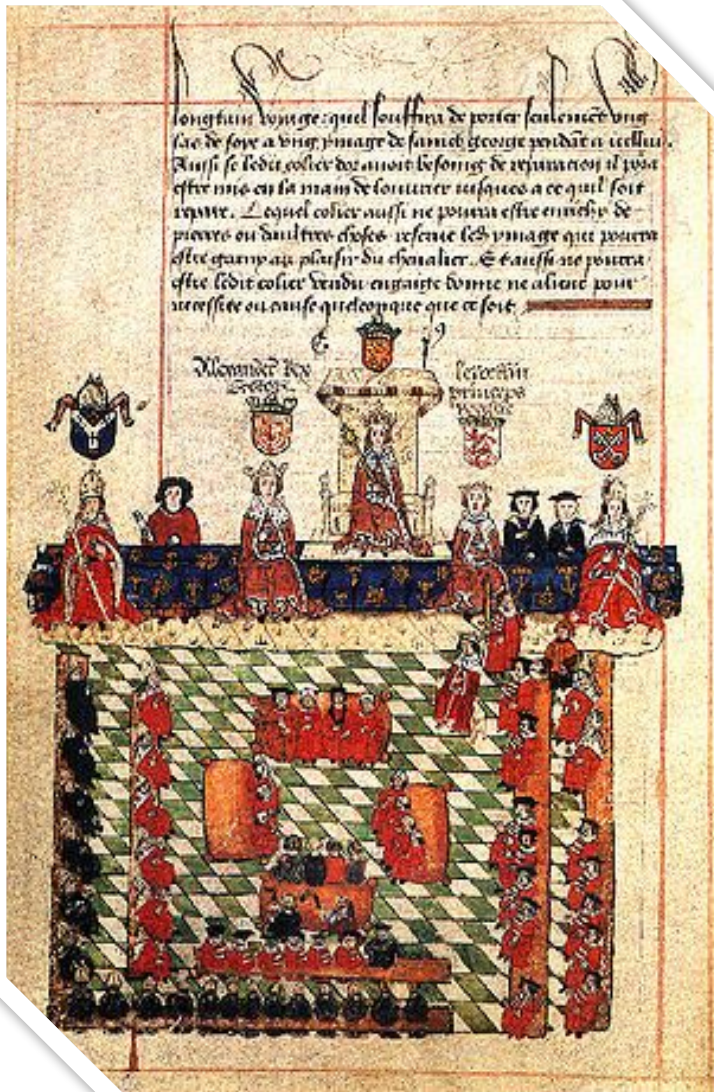 longtain voyage: quel souffira de porter seulemēt ung
las de soye a ung ymage de sainct george pendāt a icellui.
Aussi se ledit colier dor auoit besoing de reparacion il pora
estre mis en la main de louurier iusques a ce quil soit
repare. Lequel colier aussi ne pourra estre enrichy de
pierres ou daultres choses reserue led ymage qui pourra
estre garny au plaisir du cheualier. Et aussi ne pourra
estre ledit colier vendu engaige donne ne aliene pour
necessite ou cause quelconque que ce soit
E 9
Alexander Rex
princeps